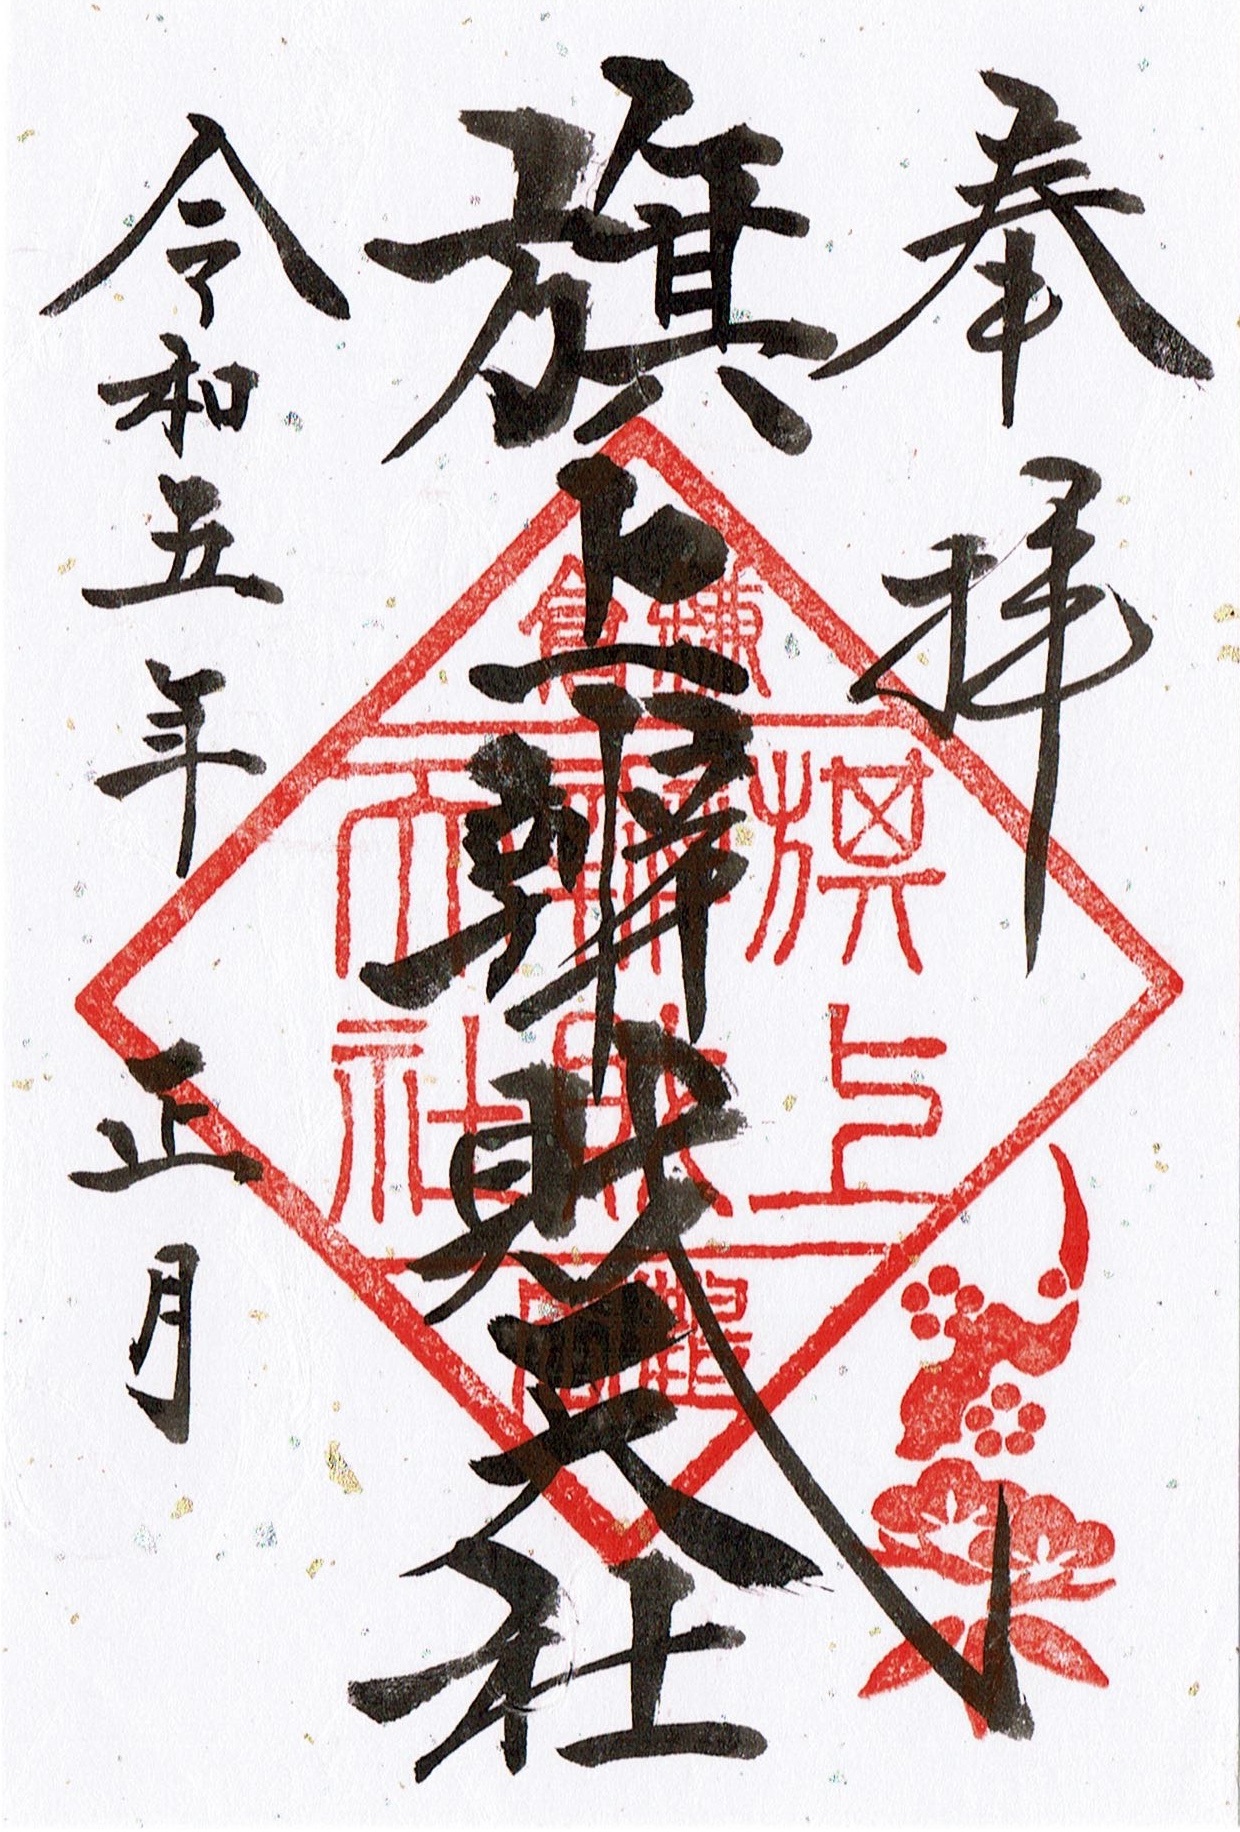 奉拝
旗上辨財天社
令和五年正月
鎌倉
旗上
辨財
天社
鶴岡